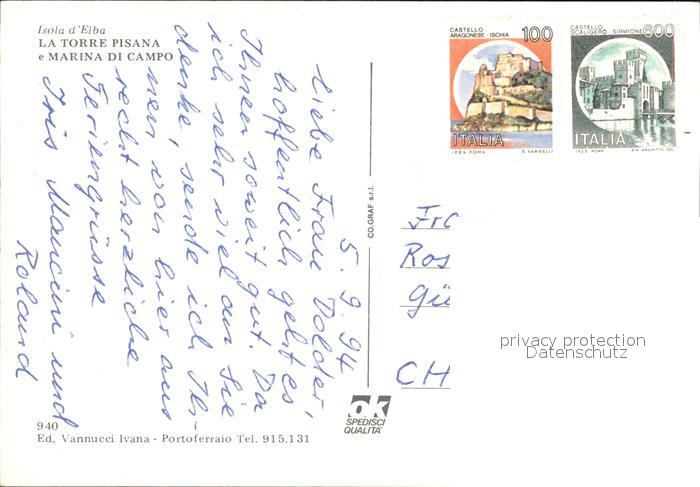 Isola d'Elba
LA TORRE PISANA
e MARINA DI CAMPO
5. 9. 94
Liebe Frau Dolder,
hoffentlich geht es
Ihnen soweit gut. Da
ich sehr viel an Sie
denke, sende ich Ih-
nen von hier aus
recht herzliche
Feriengrüsse
Iris Mancini und
Roland
CO.GRAF s.r.l.
CASTELLO
ARAGONESE - ISCHIA
100
ITALIA
I.P.Z.S. - ROMA
E. VANGELLI
CASTELLO
SCALIGERO - SIRMIONE
600
ITALIA
I.P.Z.S. ROMA
Fra
Ros
Gü
CH
privacy protection
Datenschutz
ok
SPEDISCI
QUALITÀ
940
Ed. Vannucci Ivana - Portoferraio Tel. 915.131